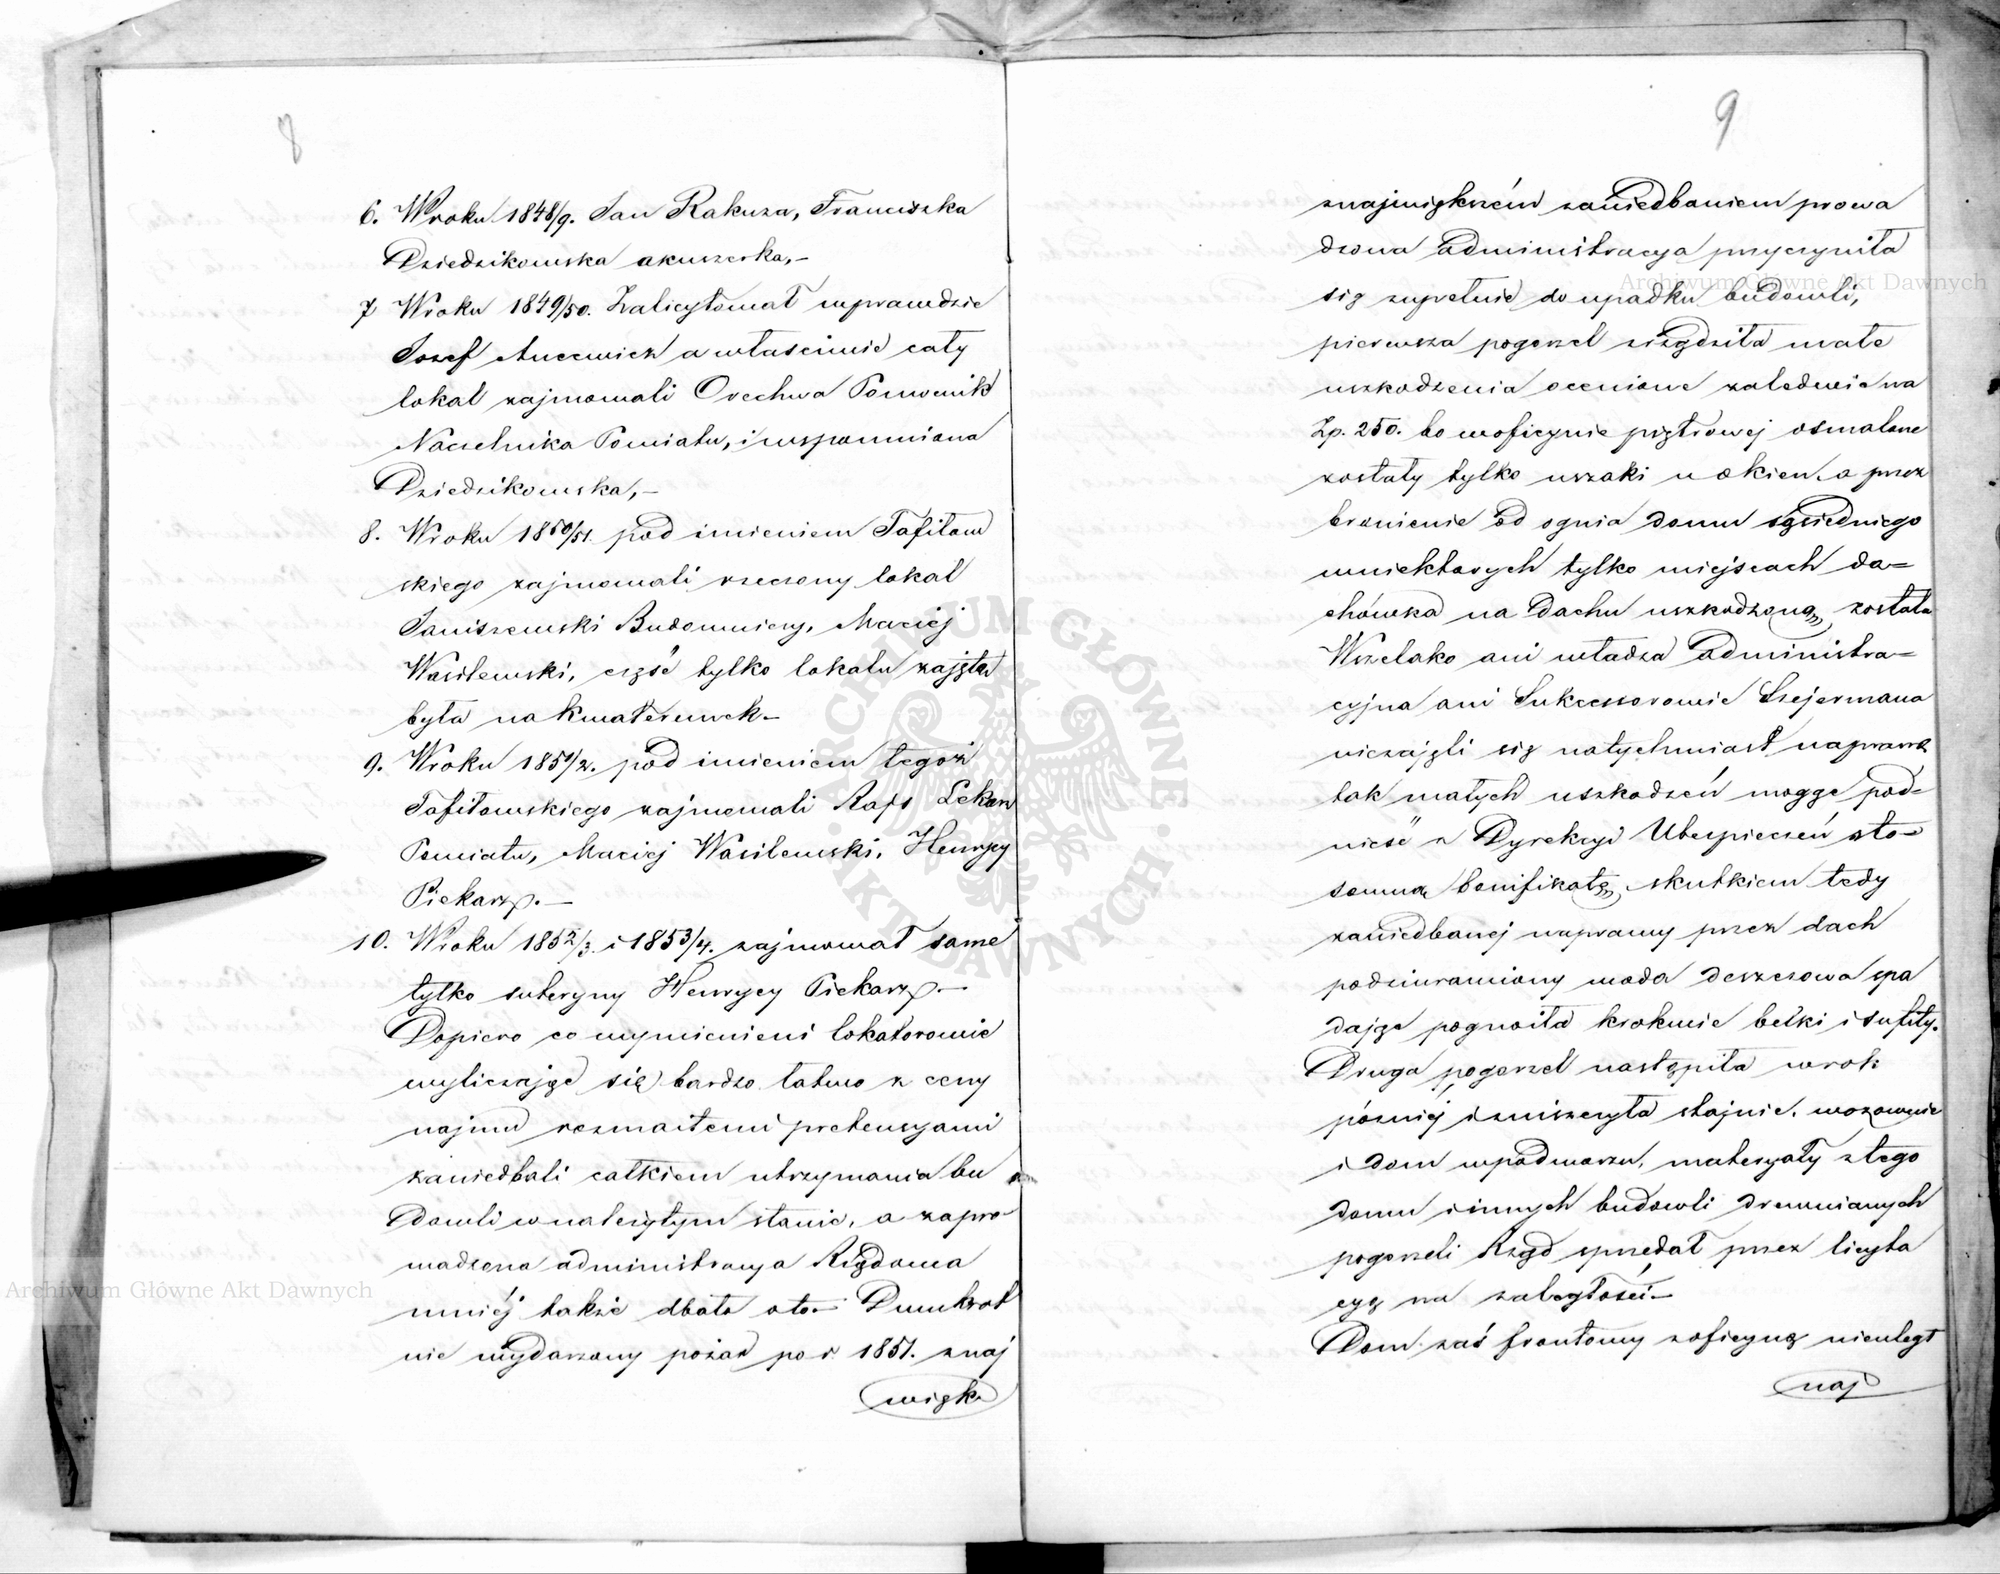 8
6. W roku 1848/9. Jan Rakuza, Franciszka
Dziedzikowska akuszerka,–
7 W roku 1849/50. Zalicytował wprawdzie
Józef Ancewicz a właściwie cały
lokal zajmowali Orechwa Pomocnik
Naczelnika Powiatu, i wspomniona
Dziedzikowska,–
8. W roku 1850/51. pod imieniem Tafiłow
skiego zajmowali rzeczony lokal
Janiszewski Budowniczy, Maciej
Wasilewski, część tylko lokalu zajęta
była na kwaterunek–
9. W roku 1851/2. pod imieniem tegoż
Tafiłowskiego zajmowali Rajs Lekarz
Powiatu, Maciej Wasilewski, Henrycy
Piekarz.–
10. W roku 1852/3. i 1853/4. zajmował same
tylko suteryny Henrycy Piekarz.–
Dopiero co wymienieni lokatorowie
wyliczając się bardzo łatwo z ceny
najmu rozmaitemi pretensyami
zaniedbali całkiem utrzymania bu
dowli w należytym stanie, a zapro-
wadzona administracya Rządowa
mniéj także dbała o to.– Dwukrot
nie wydarzony pożar po r. 1851. znaj
więk
9
znajwiększém zaniedbaniem prowa
dzona administracya przyczyniła
się zupełnie do upadku budowli,
pierwsza pogorzel zrządziła małe
uszkodzenia ocenione zaledwie na
Zp. 250. bo w oficynie piętrowej osmalone
zostały tylko uszaki u okien. a przez
bronienie od ognia domu sąsiedniego
w niektórych tylko miejscach da=
chówka na dachu uszkodzoną została
Wszelako ani władza administra=
cyjna ani Sukcessorowie Szejermana
nie zajęli się natychmiast naprawą
tak małych uszkodzeń mogąc pod=
nieść z Dyrekcyi Ubezpieczeń sto=
sowną bonifikatę, skutkiem tedy
zaniedbanej naprawy przez dach
podziurawiony woda deszczowa spa
dając pognoiła krokwie belki i sufity.
Druga pogorzel nastąpiła w rok
późniéj i zniszczyła stajnie, wozownie
i dom w podwórzu, materyały z tego
domu i innych budowli drewnianych
pogorzeli Rząd sprzedał przez licyta
cyę na zaległość–
Dom zaś frontowy z oficyną nieuległ
naj